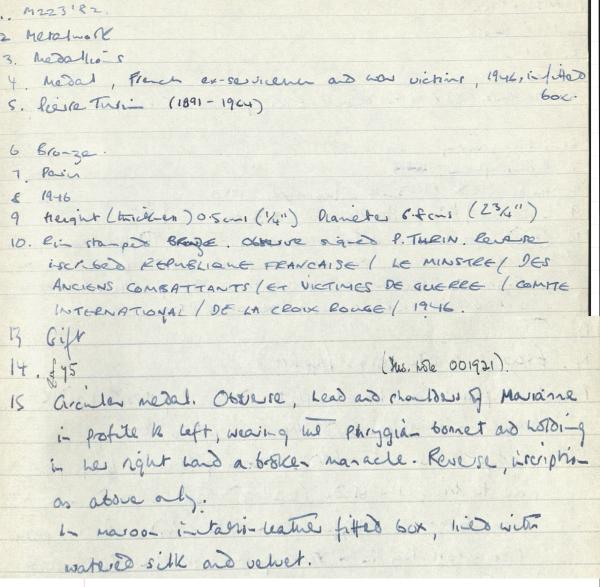 .. M223'82.
2 Metalwork
3. Medallions
4. Medal, French ex-servicemen and war victims, 1946, in fitted
box.
5. Pierre Turin (1891-1964)
6 Bronze.
7. Paris
8 1946
9 Height (thickness) 0.5cms (1/4") Diameter 6.8cms (2 3/4")
10. Rim stamped BRONZE. Obverse signed P.TURIN. Reverse
inscribed REPUBLIQUE FRANCAISE / LE MINSTRE / DES
ANCIENS COMBATTANTS / ET VICTIMES DE GUERRE / COMITE
INTERNATIONAL / DE LA CROIX ROUGE / 1946.
13 Gift
14. £45 (Ins. note 001921).
15 Circular medal. Obverse, head and shoulders of Marianne
in profile to left, wearing the phrygian bonnet and holding
in her right hand a broken manacle. Reverse, inscription
as above only.
In maroon imitation-leather fitted box, lined with
watered silk and velvet.